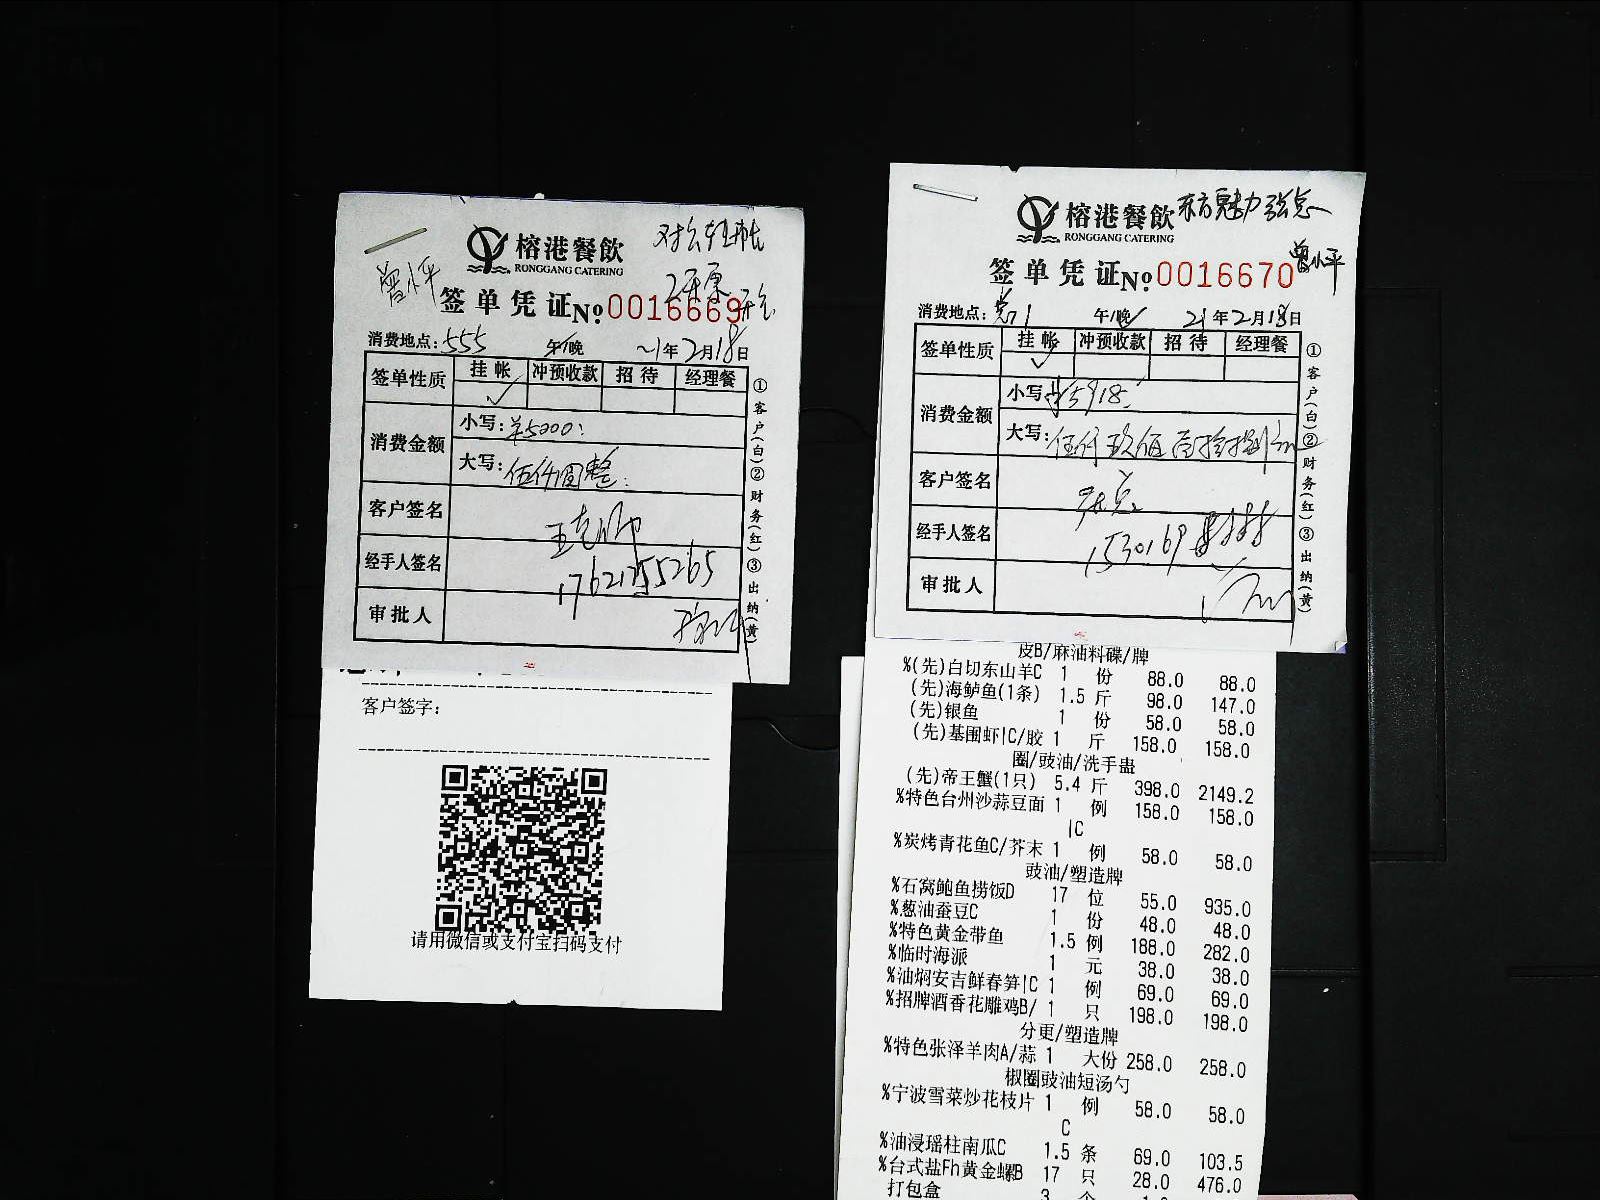 榕港餐飲
RONGGANG CATERING
曾小平
签单凭证 No 0016669
消费地点: 555 午/晚 21年2月18日
签单性质 挂帐 冲预收款 招待 经理餐
✓
消费金额 小写: ¥5000:
大写: 伍仟圆整:
客户签名
经手人签名 17621255265
审批人
①客户(白)②财务(红)③出纳(黄)
客户签字:
请用微信或支付宝扫码支付
榕港餐飲 东方魅力 张总
RONGGANG CATERING
曾小平
签单凭证 No 0016670
消费地点: 午/晚 21年2月18日
签单性质 挂帐 冲预收款 招待 经理餐
✓
消费金额 小写: ¥5918:
大写: 伍仟玖佰
客户签名 张总
经手人签名 1530169
审批人
①客户(白)②财务(红)③出纳(黄)
皮B/麻油料碟/牌
%(先)白切东山羊C 1 份 88.0 88.0
(先)海鲈鱼(1条) 1.5 斤 98.0 147.0
(先)银鱼 1 份 58.0 58.0
(先)基围虾|C/胶 1 斤 158.0 158.0
圈/豉油/洗手盅
(先)帝王蟹(1只) 5.4 斤 398.0 2149.2
%特色台州沙蒜豆面 1 例 158.0 158.0
|C
%炭烤青花鱼C/芥末 1 例 58.0 58.0
豉油/塑造牌
%石窝鲍鱼捞饭D 17 位 55.0 935.0
%葱油蚕豆C 1 份 48.0 48.0
%特色黄金带鱼 1.5 例 188.0 282.0
%临时海派 1 元 38.0 38.0
%油焖安吉鲜春笋|C 1 例 69.0 69.0
%招牌酒香花雕鸡B/ 1 只 198.0 198.0
分更/塑造牌
%特色张泽羊肉A/蒜 1 大份 258.0 258.0
椒圈豉油短汤勺
%宁波雪菜炒花枝片 1 例 58.0 58.0
C
%油浸瑶柱南瓜C 1.5 条 69.0 103.5
%台式盐Fh黄金螺B 17 只 28.0 476.0
打包盒 3 个